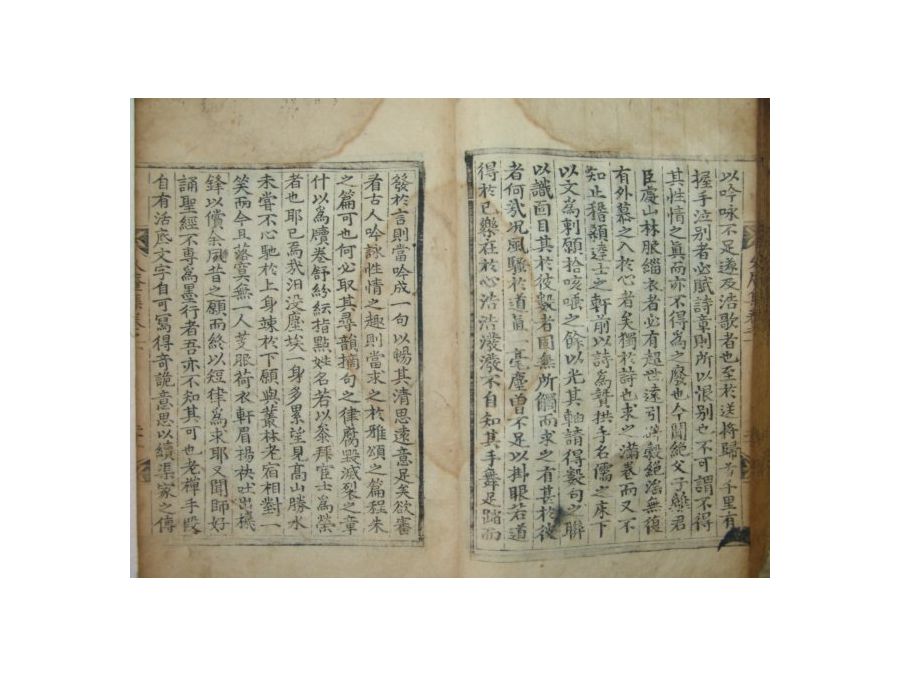 以吟咏不足遂及浩歌者也至於送將歸於千里有
握手泣別者必賦詩章則所以恨別也不可謂不得
其性情之眞而亦不得爲之廢也今聞絶父子離君
臣處山林服緇衣者必有超世遠引 絶滔無復
有外慕之入於心者矣獨於詩也求之滿卷而又不
知止稽顙逵士之軒前以詩爲贄拱手名儒之床下
以文爲剌願拾咳唾之餘以光其軸請得數句之聯
以識面目其於彼數者固無所 而求之有甚於彼
者何哉况風騷於道眞一毫塵曾不足以掛眼若道
得於已樂在於心浩浩潑潑不自知其手舞足蹈而
發於言則當吟成一句以暢其清思遠意足矣欲審
看古人吟詠性情之趣則當求之於雅頌之篇程朱
之篇可也何必取其尋韻摘句之律腐毀滅裂之章
什以爲牘卷舒紛紜指點姓名若以參拜官士爲榮
者也耶已焉哉汨沒塵埃一身多累望見高山勝水
未嘗不心馳於上身竦於下願與叢林老宿相對一
笑而今且落寞無一人芰服荷衣軒眉揚袂吐出機
鋒以償余夙昔之願而終以短律爲求耶又聞師好
誦聖經不專爲墨行者吾亦不知其可也老禪手段
自有活底文字自可寫得奇詭意思以續渠家之傳